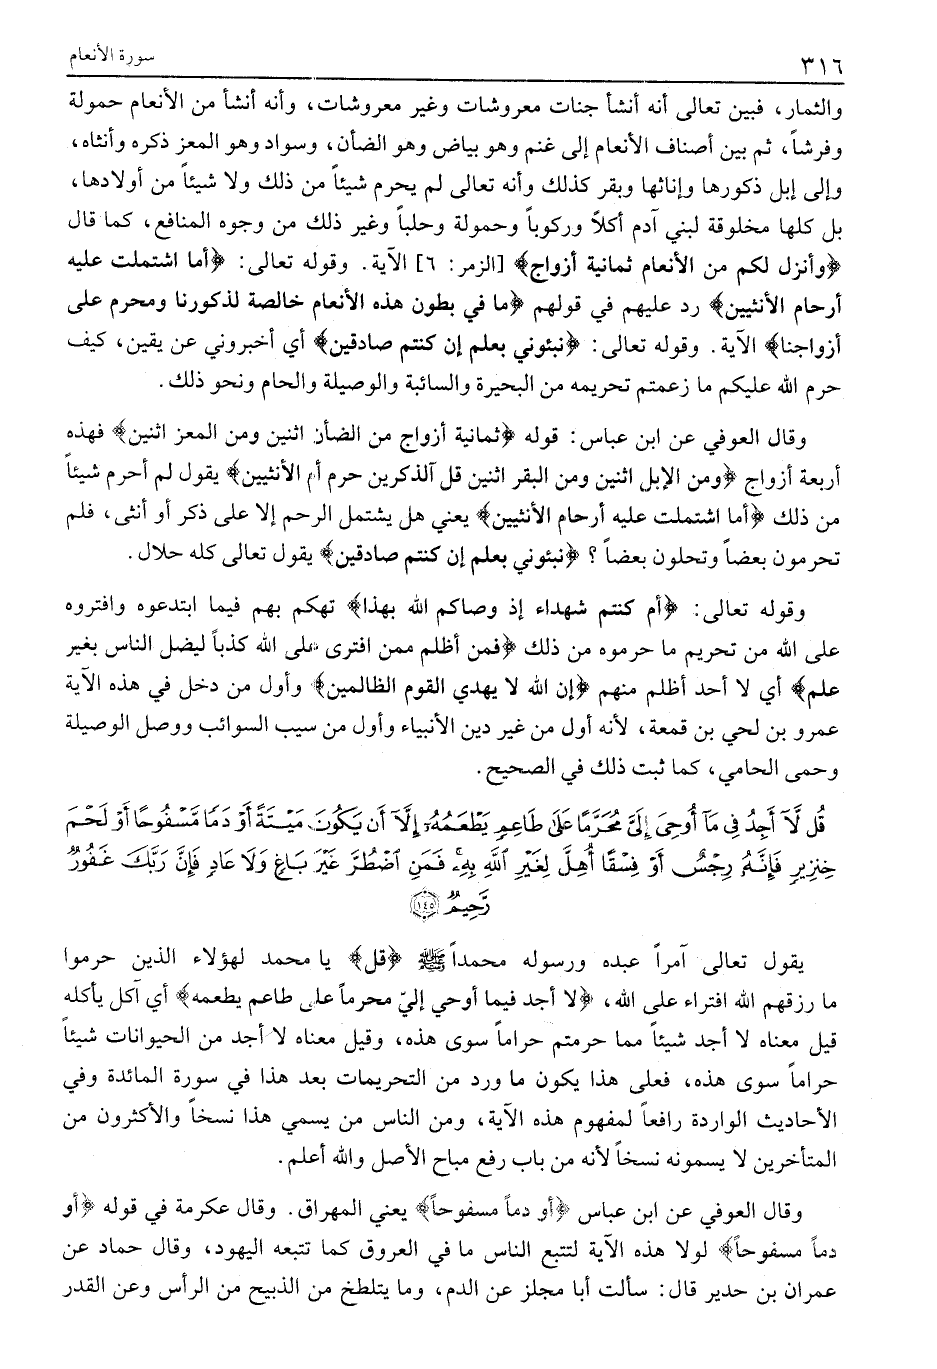 ٣١٦
سورة الأنعام
والثمار، فبين تعالى أنه أنشأ جنات معروشات وغير معروشات، وأنه أنشأ من الأنعام حمولة
وفرشاً، ثم بين أصناف الأنعام إلى غنم وهو بياض وهو الضأن، وسواد وهو المعز ذكره وأنثاه،
وإلى إبل ذكورها وإناثها وبقر كذلك وأنه تعالى لم يحرم شيئاً من ذلك ولا شيئاً من أولادها،
بل كلها مخلوقة لبني آدم أكلاً وركوباً وحمولة وحلباً وغير ذلك من وجوه المنافع، كما قال
﴿وأنزل لكم من الأنعام ثمانية أزواج﴾ [الزمر: ٦] الآية. وقوله تعالى: ﴿أما اشتملت عليه
أرحام الأنثيين﴾ رد عليهم في قولهم ﴿ما في بطون هذه الأنعام خالصة لذكورنا ومحرم على
أزواجنا﴾ الآية. وقوله تعالى: ﴿نبئوني بعلم إن كنتم صادقين﴾ أي أخبروني عن يقين، كيف
حرم الله عليكم ما زعمتم تحريمه من البحيرة والسائبة والوصيلة والحام ونحو ذلك.
وقال العوفي عن ابن عباس: قوله ﴿ثمانية أزواج من الضأن اثنين ومن المعز اثنين﴾ فهذه
أربعة أزواج ﴿ومن الإبل اثنين ومن البقر اثنين قل آلذكرين حرم أم الأنثيين﴾ يقول لم أحرم شيئاً
من ذلك ﴿أما اشتملت عليه أرحام الأنثيين﴾ يعني هل يشتمل الرحم إلا على ذكر أو أنثى، فلم
تحرمون بعضاً وتحلون بعضاً؟ ﴿نبئوني بعلم إن كنتم صادقين﴾ يقول تعالى كله حلال.
وقوله تعالى: ﴿أم كنتم شهداء إذ وصاكم الله بهذا﴾ تهكم بهم فيما ابتدعوه وافتروه
على الله من تحريم ما حرموه من ذلك ﴿فمن أظلم ممن افترى على الله كذباً ليضل الناس بغير
علم﴾ أي لا أحد أظلم منهم ﴿إن الله لا يهدي القوم الظالمين﴾ وأول من دخل في هذه الآية
عمرو بن لحي بن قمعة، لأنه أول من غير دين الأنبياء وأول من سيب السوائب ووصل الوصيلة
وحمى الحامي، كما ثبت ذلك في الصحيح.
قُل لَّآ أَجِدُ فِى مَآ أُوحِىَ إِلَىَّ مُحَرَّمًا عَلَىٰ طَاعِمٍ يَطْعَمُهُۥٓ إِلَّآ أَن يَكُونَ مَيْتَةً أَوْ دَمًا مَّسْفُوحًا أَوْ لَحْمَ
خِنزِيرٍ فَإِنَّهُۥ رِجْسٌ أَوْ فِسْقًا أُهِلَّ لِغَيْرِ ٱللَّهِ بِهِۦۚ فَمَنِ ٱضْطُرَّ غَيْرَ بَاغٍ وَلَا عَادٍ فَإِنَّ رَبَّكَ غَفُورٌ
رَّحِيمٌ ﴿١٤٥﴾
يقول تعالى آمراً عبده ورسوله محمداً ﷺ ﴿قل﴾ يا محمد لهؤلاء الذين حرموا
ما رزقهم الله افتراء على الله، ﴿لا أجد فيما أوحي إليّ محرماً على طاعم يطعمه﴾ أي آكل يأكله
قيل معناه لا أجد شيئاً مما حرمتم حراماً سوى هذه، وقيل معناه لا أجد من الحيوانات شيئاً
حراماً سوى هذه، فعلى هذا يكون ما ورد من التحريمات بعد هذا في سورة المائدة وفي
الأحاديث الواردة رافعاً لمفهوم هذه الآية، ومن الناس من يسمي هذا نسخاً والأكثرون من
المتأخرين لا يسمونه نسخاً لأنه من باب رفع مباح الأصل والله أعلم.
وقال العوفي عن ابن عباس ﴿أو دماً مسفوحاً﴾ يعني المهراق. وقال عكرمة في قوله ﴿أو
دماً مسفوحاً﴾ لولا هذه الآية لتتبع الناس ما في العروق كما تتبعه اليهود، وقال حماد عن
عمران بن حدير قال: سألت أبا مجلز عن الدم، وما يتلطخ من الذبيح من الرأس وعن القدر